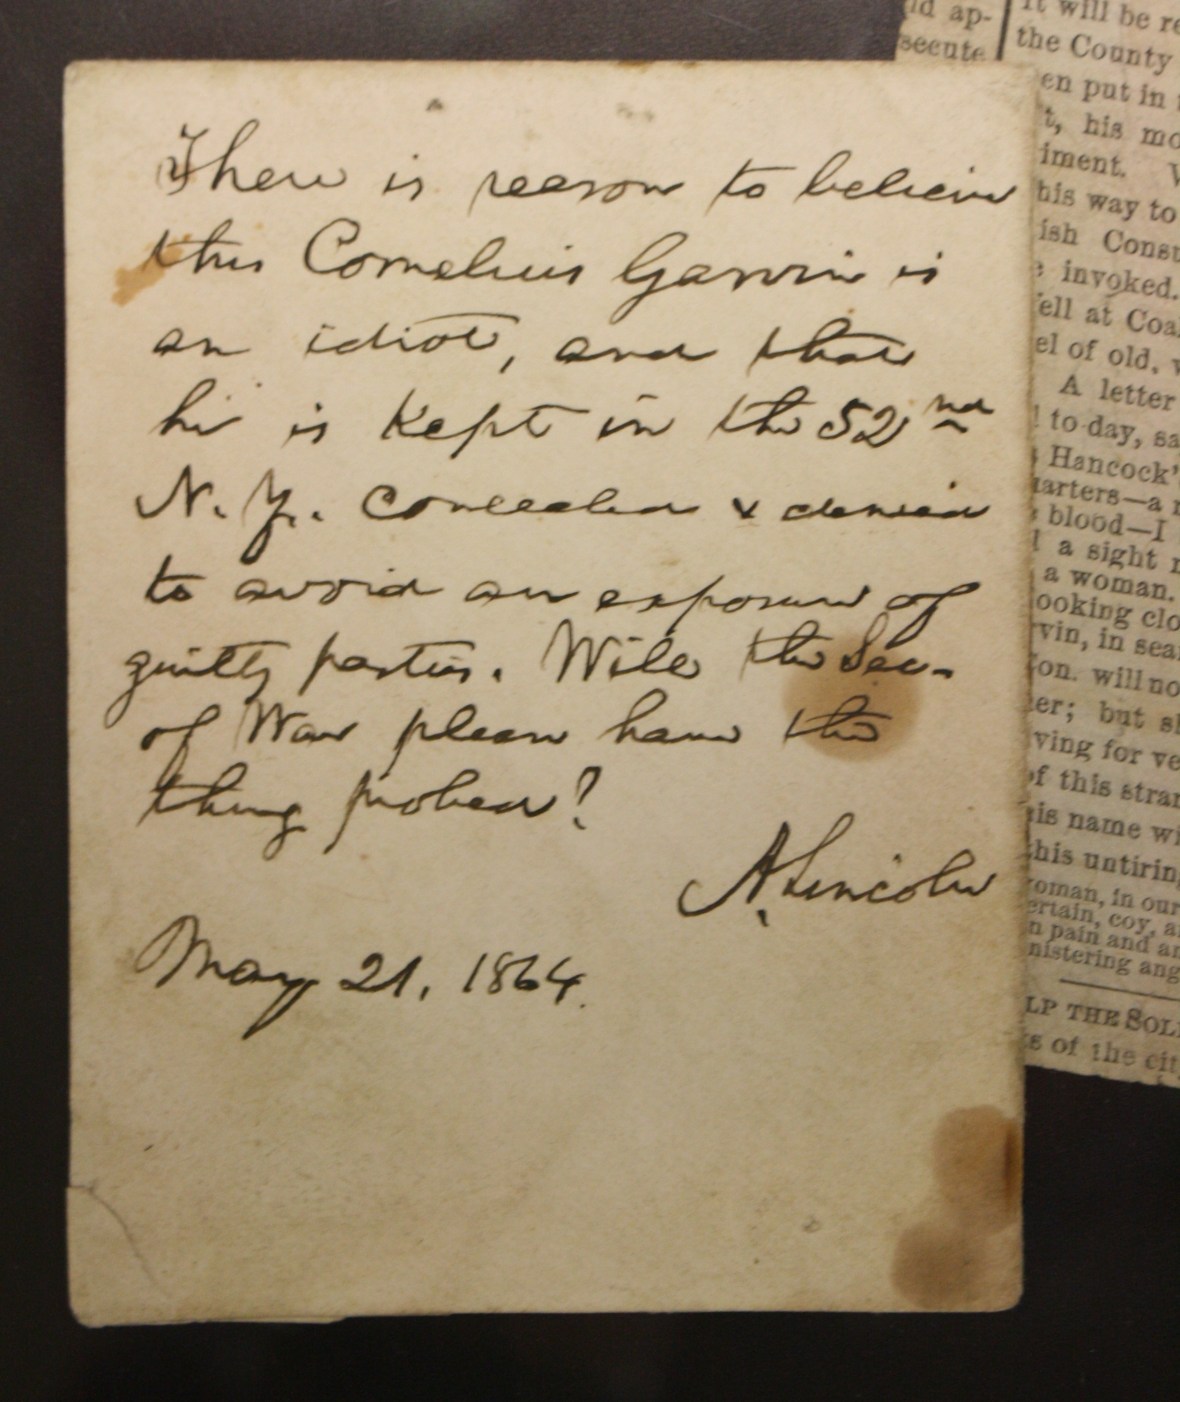 There is reason to believe
this Cornelius Garvin is
an idiot, and that
he is kept in the 52nd
N.Y. concealed & denied
to avoid an exposure of
guilty parties. Will the Sec.
of War please have the
thing probed?
A. Lincoln
May 21, 1864.
nd ap-
secute
It will be re
the County
en put in
t, his mo
iment.
his way to
ish Consu
invoked.
ell at Coa
el of old,
A letter
to-day, sa
Hancock'
uarters—a
blood—I
a sight
a woman.
ooking clo
rvin, in sea
on. will no
er; but s
ving for ve
of this stran
his name wi
this untiring
oman, in our
ertain, coy, a
n pain and an
nistering ang
LP THE SOL
s of the cit